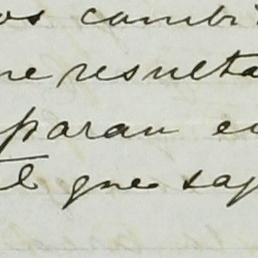 os cambi
ne resulta
paran e
l que sap